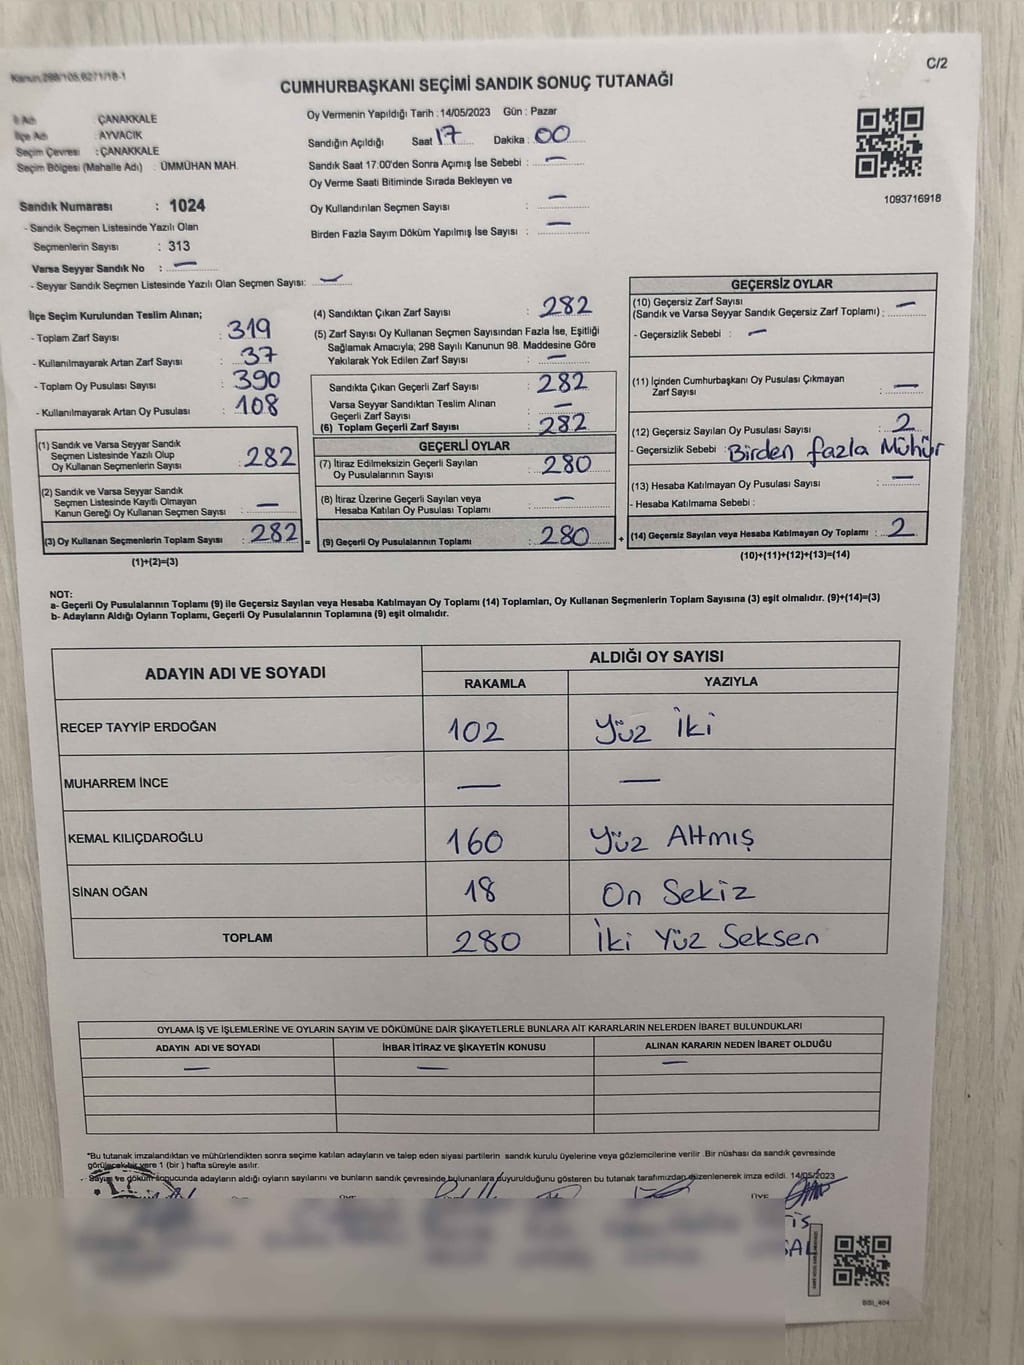 Kanun,298/105,6271/18-1
C/2
CUMHURBAŞKANI SEÇİMİ SANDIK SONUÇ TUTANAĞI
İl Adı ÇANAKKALE
İlçe Adı : AYVACIK
Seçim Çevresi : ÇANAKKALE
Seçim Bölgesi (Mahalle Adı) : ÜMMÜHAN MAH.
Oy Vermenin Yapıldığı Tarih : 14/05/2023 Gün : Pazar
Sandığın Açıldığı Saat 17 Dakika : 00
Sandık Saat 17.00'den Sonra Açımış İse Sebebi : —
Oy Verme Saati Bitiminde Sırada Bekleyen ve
Oy Kullandırılan Seçmen Sayısı : —
Birden Fazla Sayım Döküm Yapılmış İse Sayısı : —
1093716918
Sandık Numarası : 1024
- Sandık Seçmen Listesinde Yazılı Olan
Seçmenlerin Sayısı : 313
Varsa Seyyar Sandık No : —
- Seyyar Sandık Seçmen Listesinde Yazılı Olan Seçmen Sayısı: —
İlçe Seçim Kurulundan Teslim Alınan;
- Toplam Zarf Sayısı : 319
- Kullanılmayarak Artan Zarf Sayısı : 37
- Toplam Oy Pusulası Sayısı : 390
- Kullanılmayarak Artan Oy Pusulası : 108
(1) Sandık ve Varsa Seyyar Sandık
Seçmen Listesinde Yazılı Olup
Oy Kullanan Seçmenlerin Sayısı : 282
(2) Sandık ve Varsa Seyyar Sandık
Seçmen Listesinde Kayıtlı Olmayan
Kanun Gereği Oy Kullanan Seçmen Sayısı : —
(3) Oy Kullanan Seçmenlerin Toplam Sayısı : 282 =
(1)+(2)=(3)
(4) Sandıktan Çıkan Zarf Sayısı : 282
(5) Zarf Sayısı Oy Kullanan Seçmen Sayısından Fazla İse, Eşitliği
Sağlamak Amacıyla; 298 Sayılı Kanunun 98. Maddesine Göre
Yakılarak Yok Edilen Zarf Sayısı : —
Sandıkta Çıkan Geçerli Zarf Sayısı : 282
Varsa Seyyar Sandıktan Teslim Alınan
Geçerli Zarf Sayısı : —
(6) Toplam Geçerli Zarf Sayısı : 282
GEÇERLİ OYLAR
(7) İtiraz Edilmeksizin Geçerli Sayılan
Oy Pusulalarının Sayısı : 280
(8) İtiraz Üzerine Geçerli Sayılan veya
Hesaba Katılan Oy Pusulası Toplamı : —
(9) Geçerli Oy Pusulalarının Toplamı : 280 +
GEÇERSİZ OYLAR
(10) Geçersiz Zarf Sayısı
(Sandık ve Varsa Seyyar Sandık Geçersiz Zarf Toplamı) : —
- Geçersizlik Sebebi : —
(11) İçinden Cumhurbaşkanı Oy Pusulası Çıkmayan
Zarf Sayısı : —
(12) Geçersiz Sayılan Oy Pusulası Sayısı : 2
- Geçersizlik Sebebi : Birden fazla Mühür
(13) Hesaba Katılmayan Oy Pusulası Sayısı : —
- Hesaba Katılmama Sebebi :
(14) Geçersiz Sayılan veya Hesaba Katılmayan Oy Toplamı : 2
(10)+(11)+(12)+(13)=(14)
NOT:
a- Geçerli Oy Pusulalarının Toplamı (9) ile Geçersiz Sayılan veya Hesaba Katılmayan Oy Toplamı (14) Toplamları, Oy Kullanan Seçmenlerin Toplam Sayısına (3) eşit olmalıdır. (9)+(14)=(3)
b- Adayların Aldığı Oyların Toplamı, Geçerli Oy Pusulalarının Toplamına (9) eşit olmalıdır.
ADAYIN ADI VE SOYADI ALDIĞI OY SAYISI
RAKAMLA YAZIYLA
RECEP TAYYİP ERDOĞAN 102 Yüz İki
MUHARREM İNCE — —
KEMAL KILIÇDAROĞLU 160 Yüz Altmış
SİNAN OĞAN 18 On Sekiz
TOPLAM 280 İki Yüz Seksen
OYLAMA İŞ VE İŞLEMLERİNE VE OYLARIN SAYIM VE DÖKÜMÜNE DAİR ŞİKAYETLERLE BUNLARA AİT KARARLARIN NELERDEN İBARET BULUNDUKLARI
ADAYIN ADI VE SOYADI İHBAR İTİRAZ VE ŞİKAYETİN KONUSU ALINAN KARARIN NEDEN İBARET OLDUĞU
— — —
*Bu tutanak imzalandıktan ve mühürlendikten sonra seçime katılan adayların ve talep eden siyasi partilerin sandık kurulu üyelerine veya gözlemcilerine verilir. Bir nüshası da sandık çevresinde
görülecek bir yere 1 (bir ) hafta süreyle asılır.
- Sayım ve döküm sonucunda adayların aldığı oyların sayılarını ve bunların sandık çevresinde bulunanlara duyurulduğunu gösteren bu tutanak tarafımızdan düzenlenerek imza edildi. 14/05/2023
BBI_404